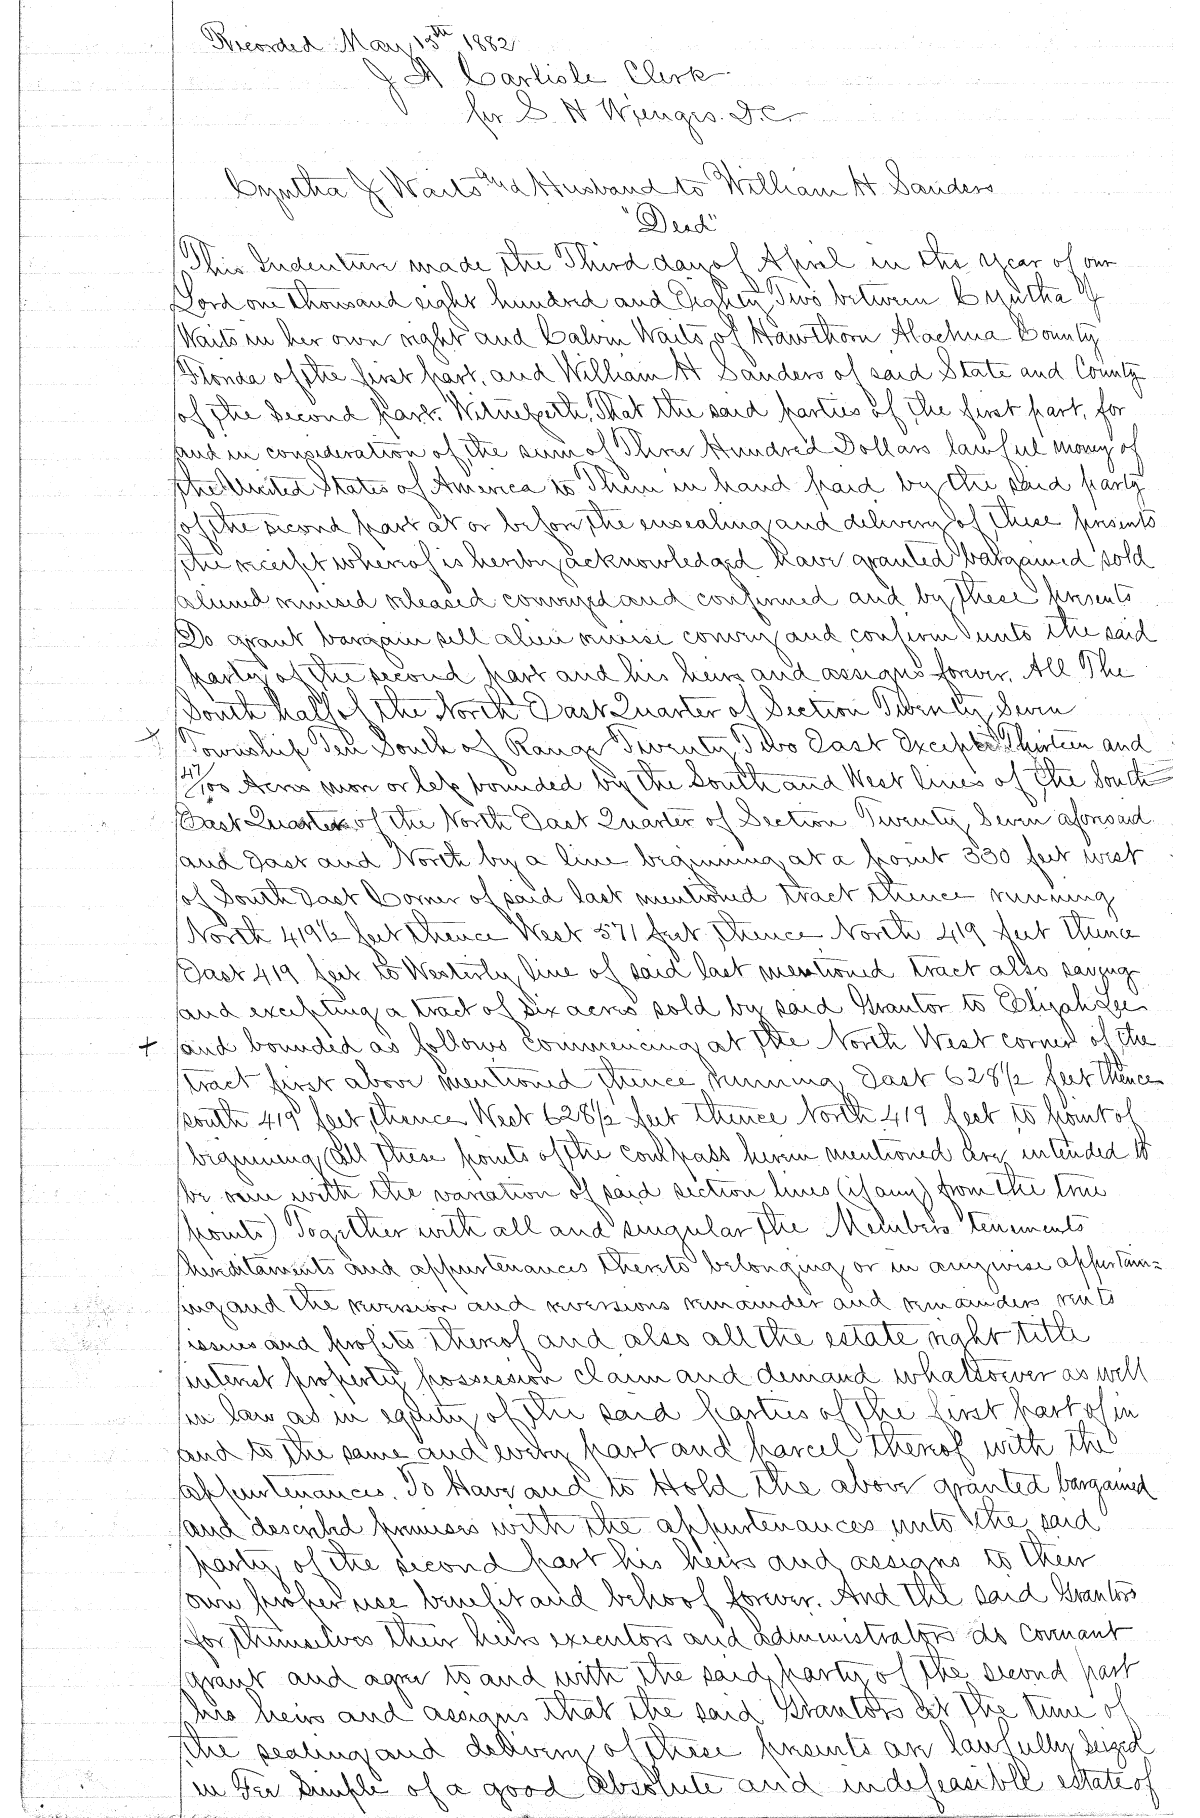 Recorded May 15th 1882
J A Carlisle Clerk
for S. H Wienges. D.C.
Cyntha J Waits and Husband to William H Sanders
"Deed"
This Indenture made the Third day of April in the year of our
Lord one thousand eight hundred and Eighty Two between Cyntha J
Waits in her own right and Calvin Waits of Hawthorn Alachua County
Florida of the first part, and William H Sanders of said State and County
of the Second part. Witnesseth, That the said parties of the first part, for
and in consideration of the sum of Three Hundred Dollars lawful money of
the United States of America to Them in hand paid by the said party
of the second part at or before the ensealing and delivery of these presents
the receipt whereof is hereby acknowledged have granted bargained sold
aliened remised released conveyed and confirmed and by these presents
Do grant bargain sell alien remise convey and confirm unto the said
party of the second part and his heirs and assigns forever. All The
South half of the North East Quarter of Section Twenty Seven
Township Ten South of Range Twenty Two East Except Thirteen and
47/100 Acres more or less bounded by the South and West lines of the South
East Quarter of the North East Quarter of Section Twenty Seven aforesaid
and East and North by a line beginning at a point 330 feet west
of South East Corner of said last mentioned tract thence running
North 419½ feet thence West 571 feet thence North 419 feet thence
East 419 feet to Westerly line of said last mentioned tract also saving
and excepting a tract of six acres sold by said Grantor to Elijah Lee
+ and bounded as follows Commencing at the North West corner of the
tract first above mentioned thence running East 628½ feet thence
south 419 feet thence West 628½ feet thence North 419 feet to point of
beginning (all these points of the compass herein mentioned are intended to
be run with the variation of said section lines (if any) from the true
points) Together with all and singular the Members tenements
hereditaments and appurtenances thereto belonging or in anywise appertain=
ing and the reversion and reversions remainder and remainders rents
issues and profits thereof and also all the estate right title
interest property possession claim and demand whatsoever as well
in law as in equity of the said parties of the first part of in
and to the same and every part and parcel thereof with the
appurtenances. To Have and to Hold the above granted bargained
and described premises with the appurtenances unto the said
party of the second part his heirs and assigns to their
own proper use benefit and behoof forever. And the said Grantors
for themselves their heirs executors and administrators do covenant
grant and agree to and with the said party of the second part
his heirs and assigns that the said Grantors at the time of
the sealing and delivery of these presents are lawfully seized
in Fee Simple of a good absolute and indefeasible estate of